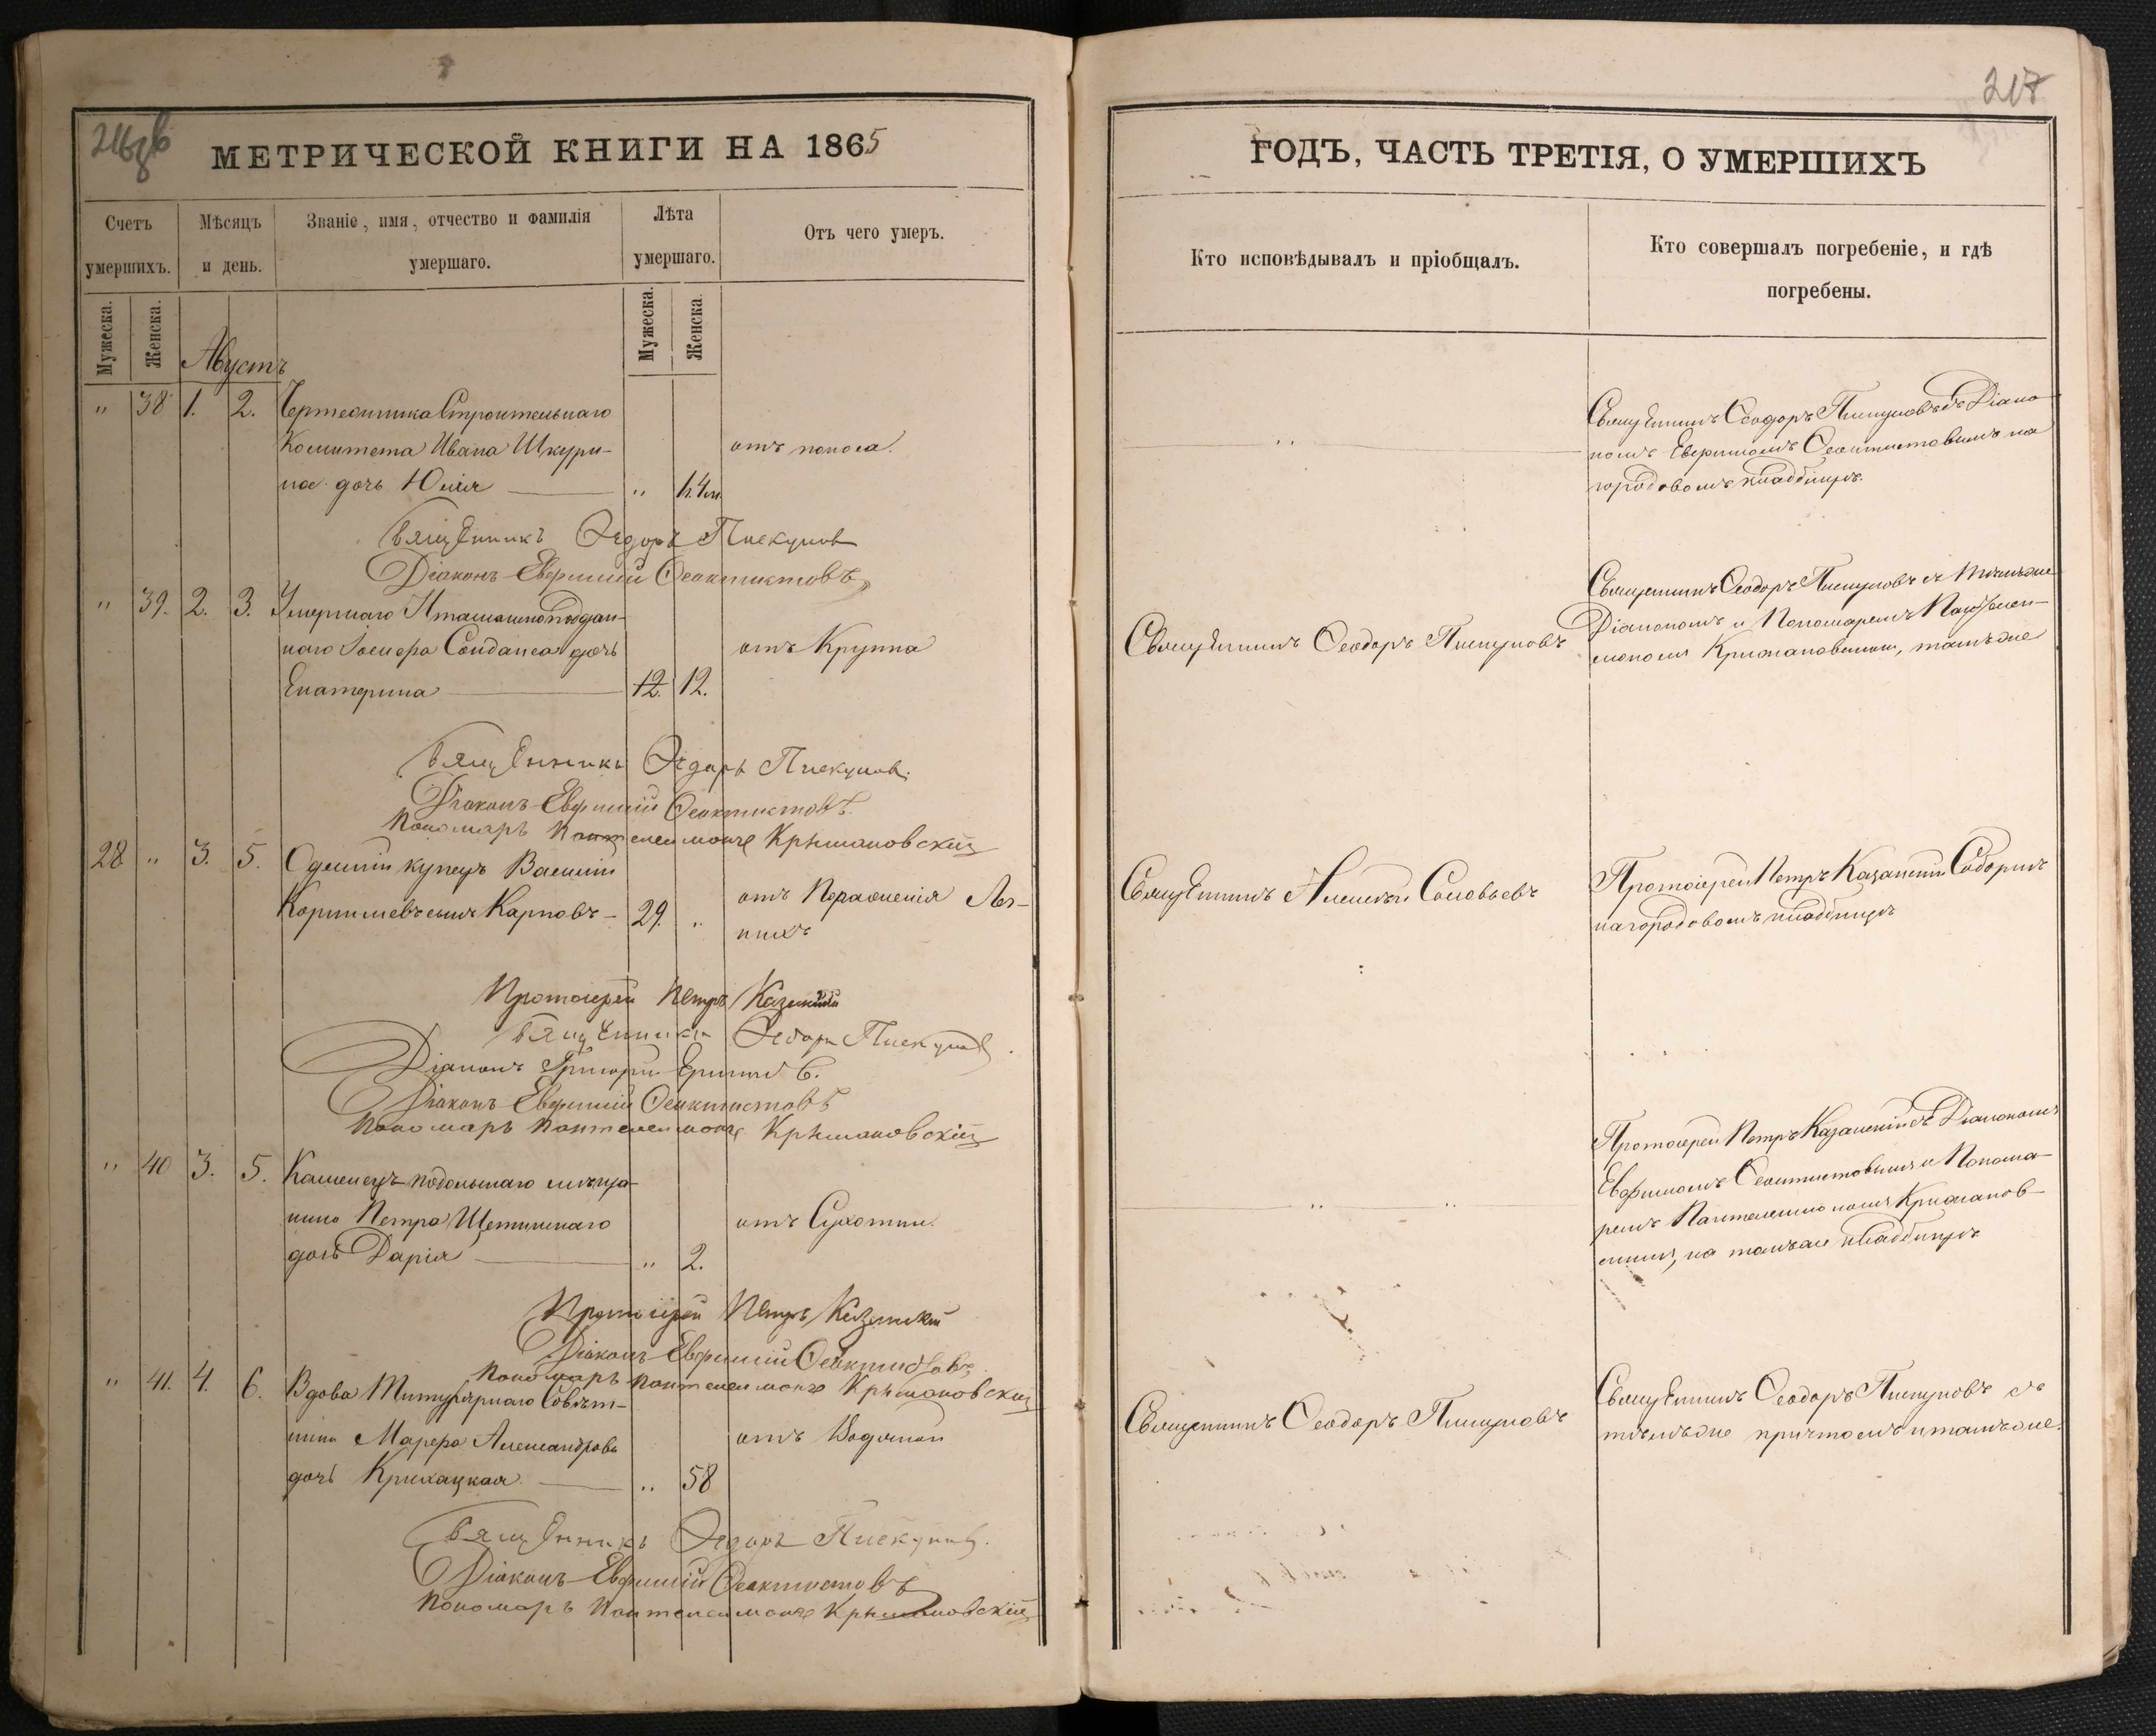 217
МЕТРИЧЕСКОЙ КНИГИ НА 1865
ГОДЪ, ЧАСТЬ ТРЕТІЯ, О УМЕРШИХЪ
Счетъ умершихъ.
Мѣсяцъ и день.
Званіе, имя, отчество и фамилія умершаго.
Лѣта умершаго.
Отъ чего умеръ.
Кто исповѣдывалъ и пріобщалъ.
Кто совершалъ погребеніе, и гдѣ погребены.
Мужеска.
Женска.
Мужеска.
Женска.
Августъ
" 38 1. 2. Чертежника Строительнаго
Комитета Ивана Шкури-
на дочь Юлія " отъ поноса.
Священникъ Ѳеодоръ Пискуновъ съ Діако-
номъ Евфиміемъ Ѳеоктистовымъ на
городовомъ кладбищѣ.
Священникъ Ѳедоръ Пискунов
Діаконъ Евфимій Ѳеоктистовъ
" 39. 2. 3. Умершаго Италианскоподдан-
наго дочь
Екатерина 12. 12. отъ Круппа
Священникъ Ѳеодоръ Пискуновъ
Священникъ Ѳеодоръ Пискуновъ съ тѣмъже
Діакономъ и Пономаремъ Пантелеи-
мономъ Крижановскимъ, тамъже
Священникъ Ѳедоръ Пискунов
Діаконъ Евфимій Ѳеоктистовъ
Пономарь Пантелеимонъ Крыжановскій
28 " 3. 5. Одесскій купецъ Василій
Корнильевъ сынъ Карповъ 29. " отъ Пораженія Лег-
кихъ
Священникъ Алексѣй Соловьевъ
Протоіерей Петръ Казанскій Соборнѣ
на городовомъ кладбищѣ
Протоіерей Петръ Казанскій
Священникъ Ѳедоръ Пискунов
Діаконъ Григорій
Діаконъ Евфимій Ѳеоктистовъ
Пономарь Пантелеимонъ Крыжановскій
" 40 3. 5. Каменецъ-подольскаго мѣща-
нина Петра Щетинскаго
дочь Дарія " 2. отъ Сухотки.
Протоіерей Петръ Казанскій съ Діакономъ
Евфиміемъ Ѳеоктистовымъ и Понома-
ремъ Пантелеимономъ Крижанов-
скимъ, на томъже кладбищѣ
Протоіерей Петръ Казанскій
Діаконъ Евфимій Ѳеоктистовъ
Пономарь Пантелеимонъ Крыжановскій
" 41. 4. 6. Вдова Титулярнаго Совѣт-
ника Марфа Александрова
дочь Крихацкая " 58 отъ Водянки
Священникъ Ѳеодоръ Пискуновъ
Священникъ Ѳеодоръ Пискуновъ съ
тѣмъже причтомъ и тамъже.
Священникъ Ѳедоръ Пискунов.
Діаконъ Евфимій Ѳеоктистовъ
Пономарь Пантелеимонъ Крыжановскій